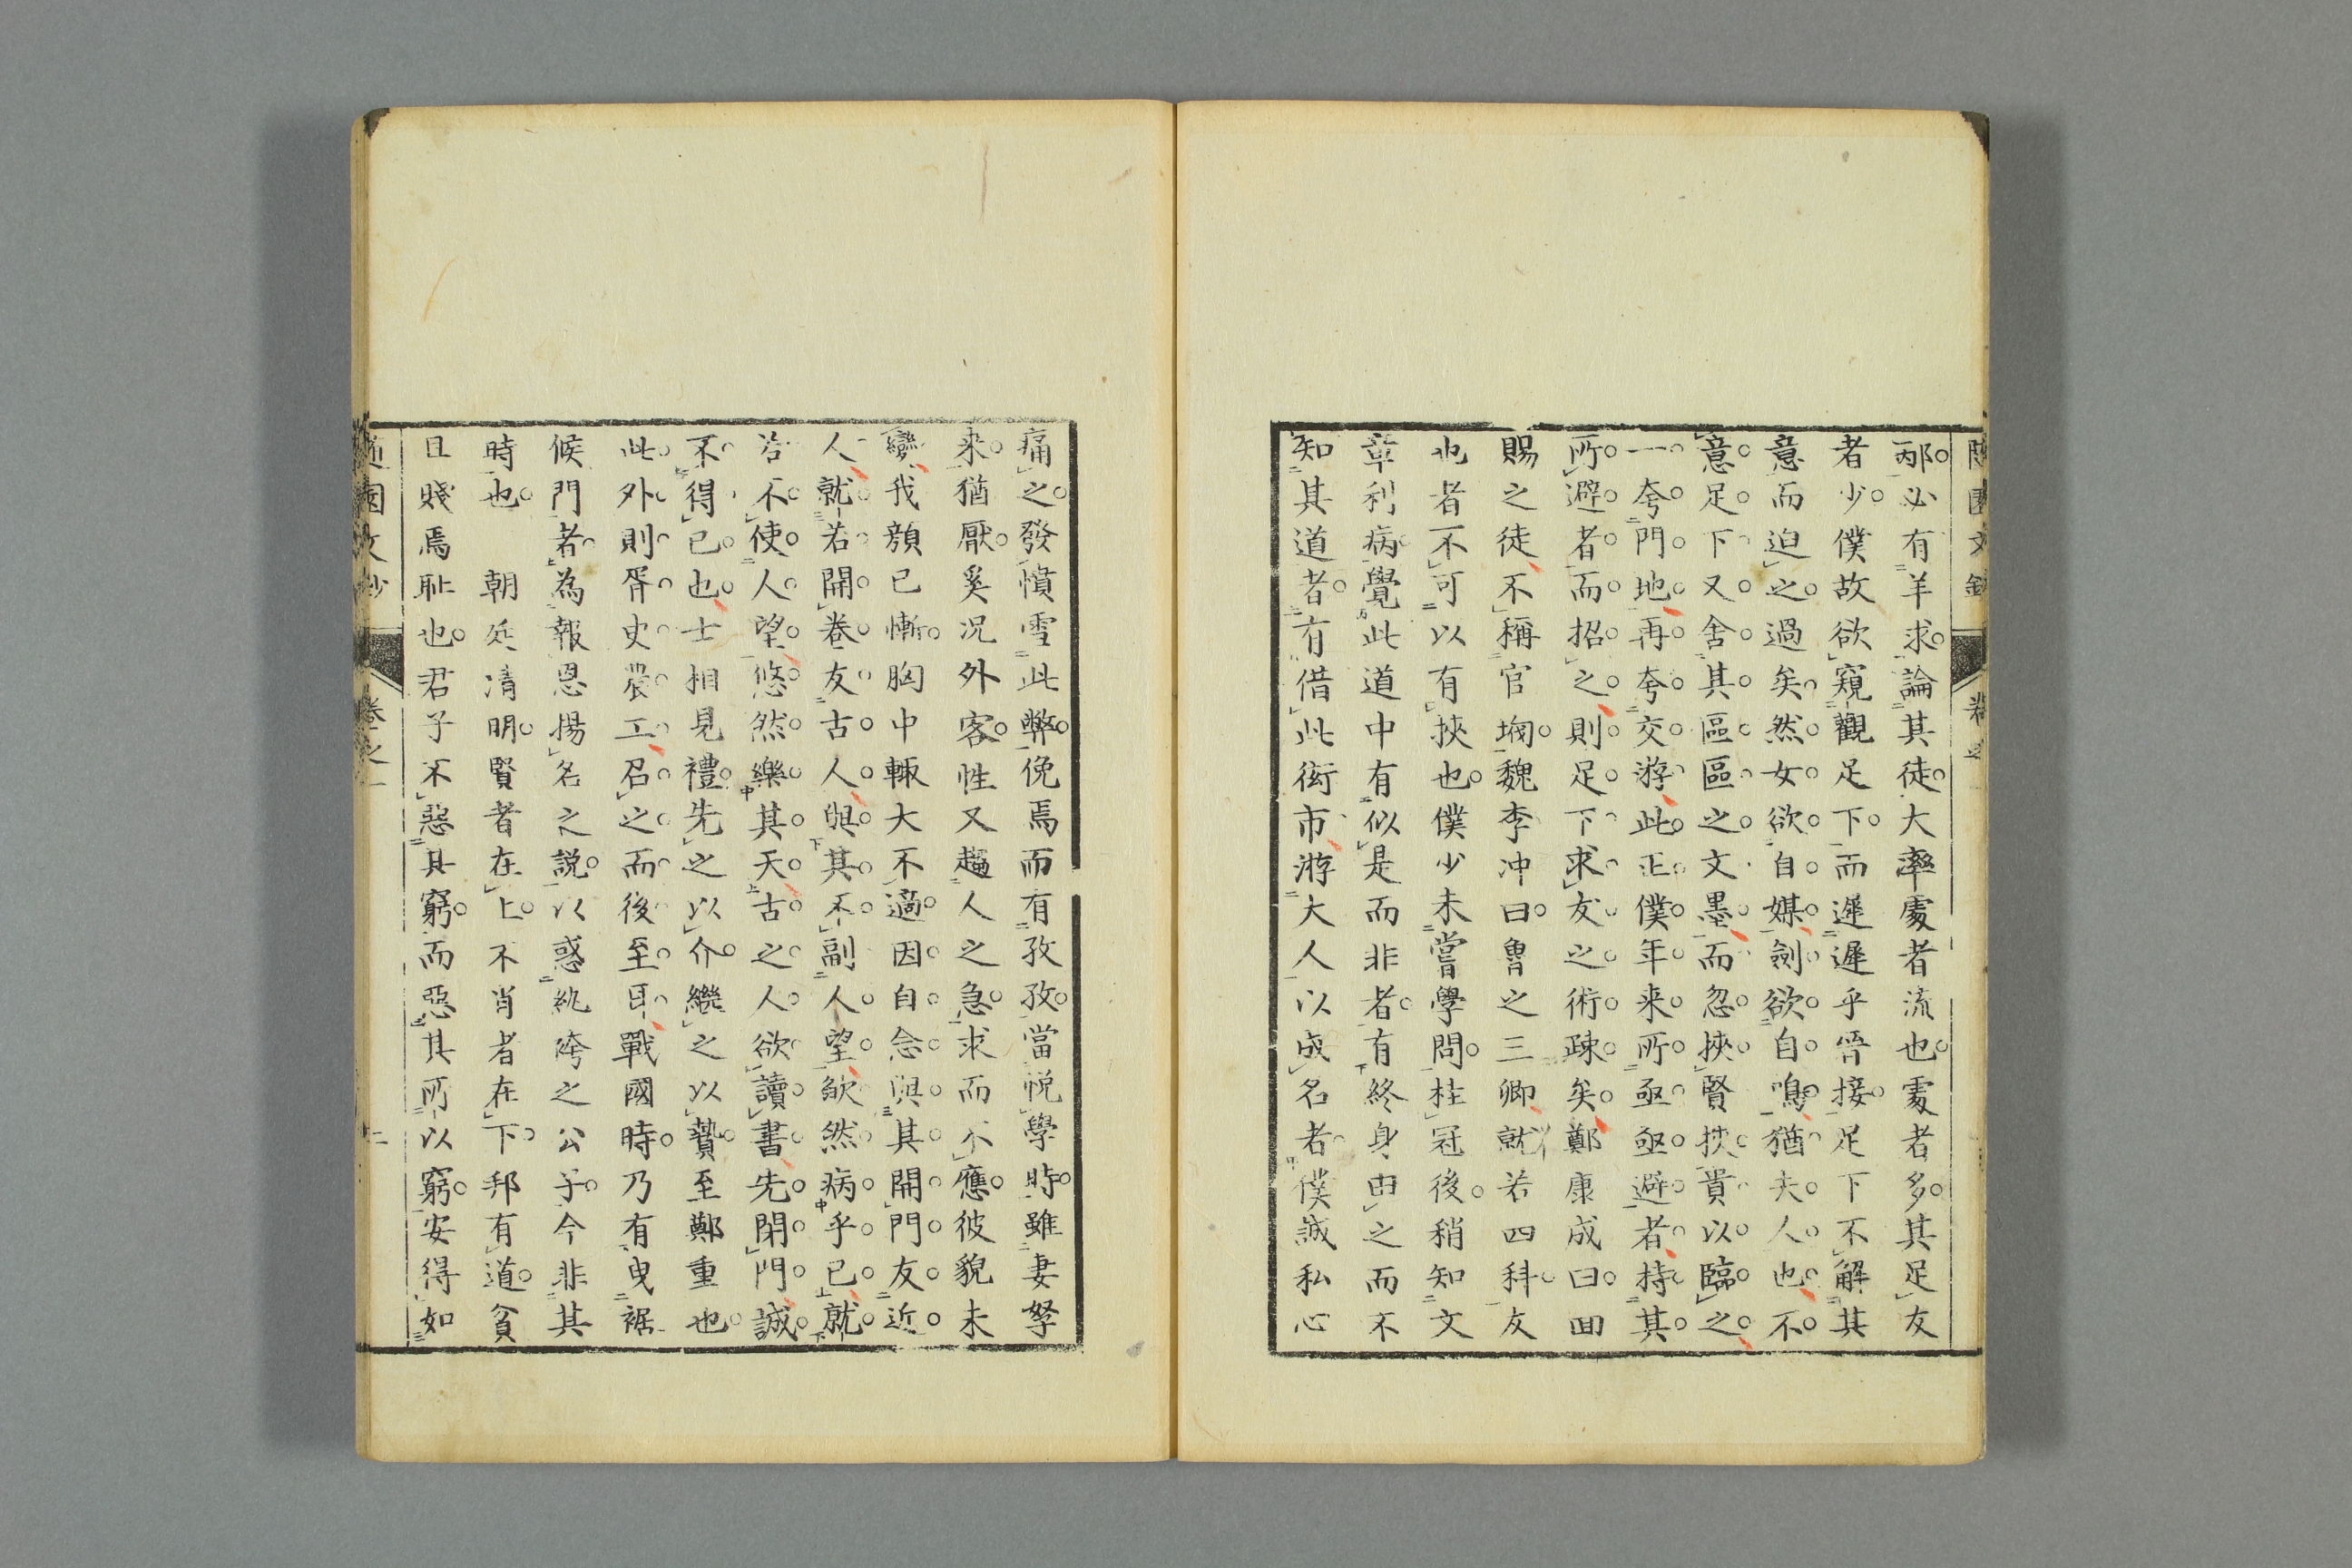 隨園文鈔 卷之一
邴必有羊求論其徒大率處者流也處者多其足友
者少僕故欲窺觀足下而遲遲乎晉接足下不解其
意而迫之過矣然女欲自媒劍欲自鳴猶夫人也不
意足下又舍其區區之文墨而忽挾賢挾貴以臨之
一夸門地再夸交游此正僕年来所亟亟避者持其
所避者而招之則足下求友之術疎矣鄭康成曰回
賜之徒不稱官堋魏李冲曰魯之三卿就若四科友
也者不可以有挾也僕少未嘗學問桂冠後稍知文
章利病覺此道中有似是而非者有終身由之而不
知其道者有借此衒市游大人以成名者僕誠私心
痛之發憤雪此弊俛焉而有孜孜當悅學時雖妻孥
来猶厭奚况外客性又趨人之急求而不應彼貌未
變我顏已慚胸中輙大不適因自念與其開門友近
人就若開卷友古人與其不副人望欿然病乎已就
若不使人望悠然樂其天古之人欲讀書先閉門誠
不得已也士相見禮先之以介繼之以贄至鄭重也
此外則胥史農工召之而後至耳戰國時乃有曳裾
候門者為報恩揚名之説以惑紈袴之公子今非其
時也 朝廷清明賢者在上不肖者在下邦有道貧
且賤焉耻也君子不惡其窮而惡其所以窮安得如
隨園文鈔 卷之一 二